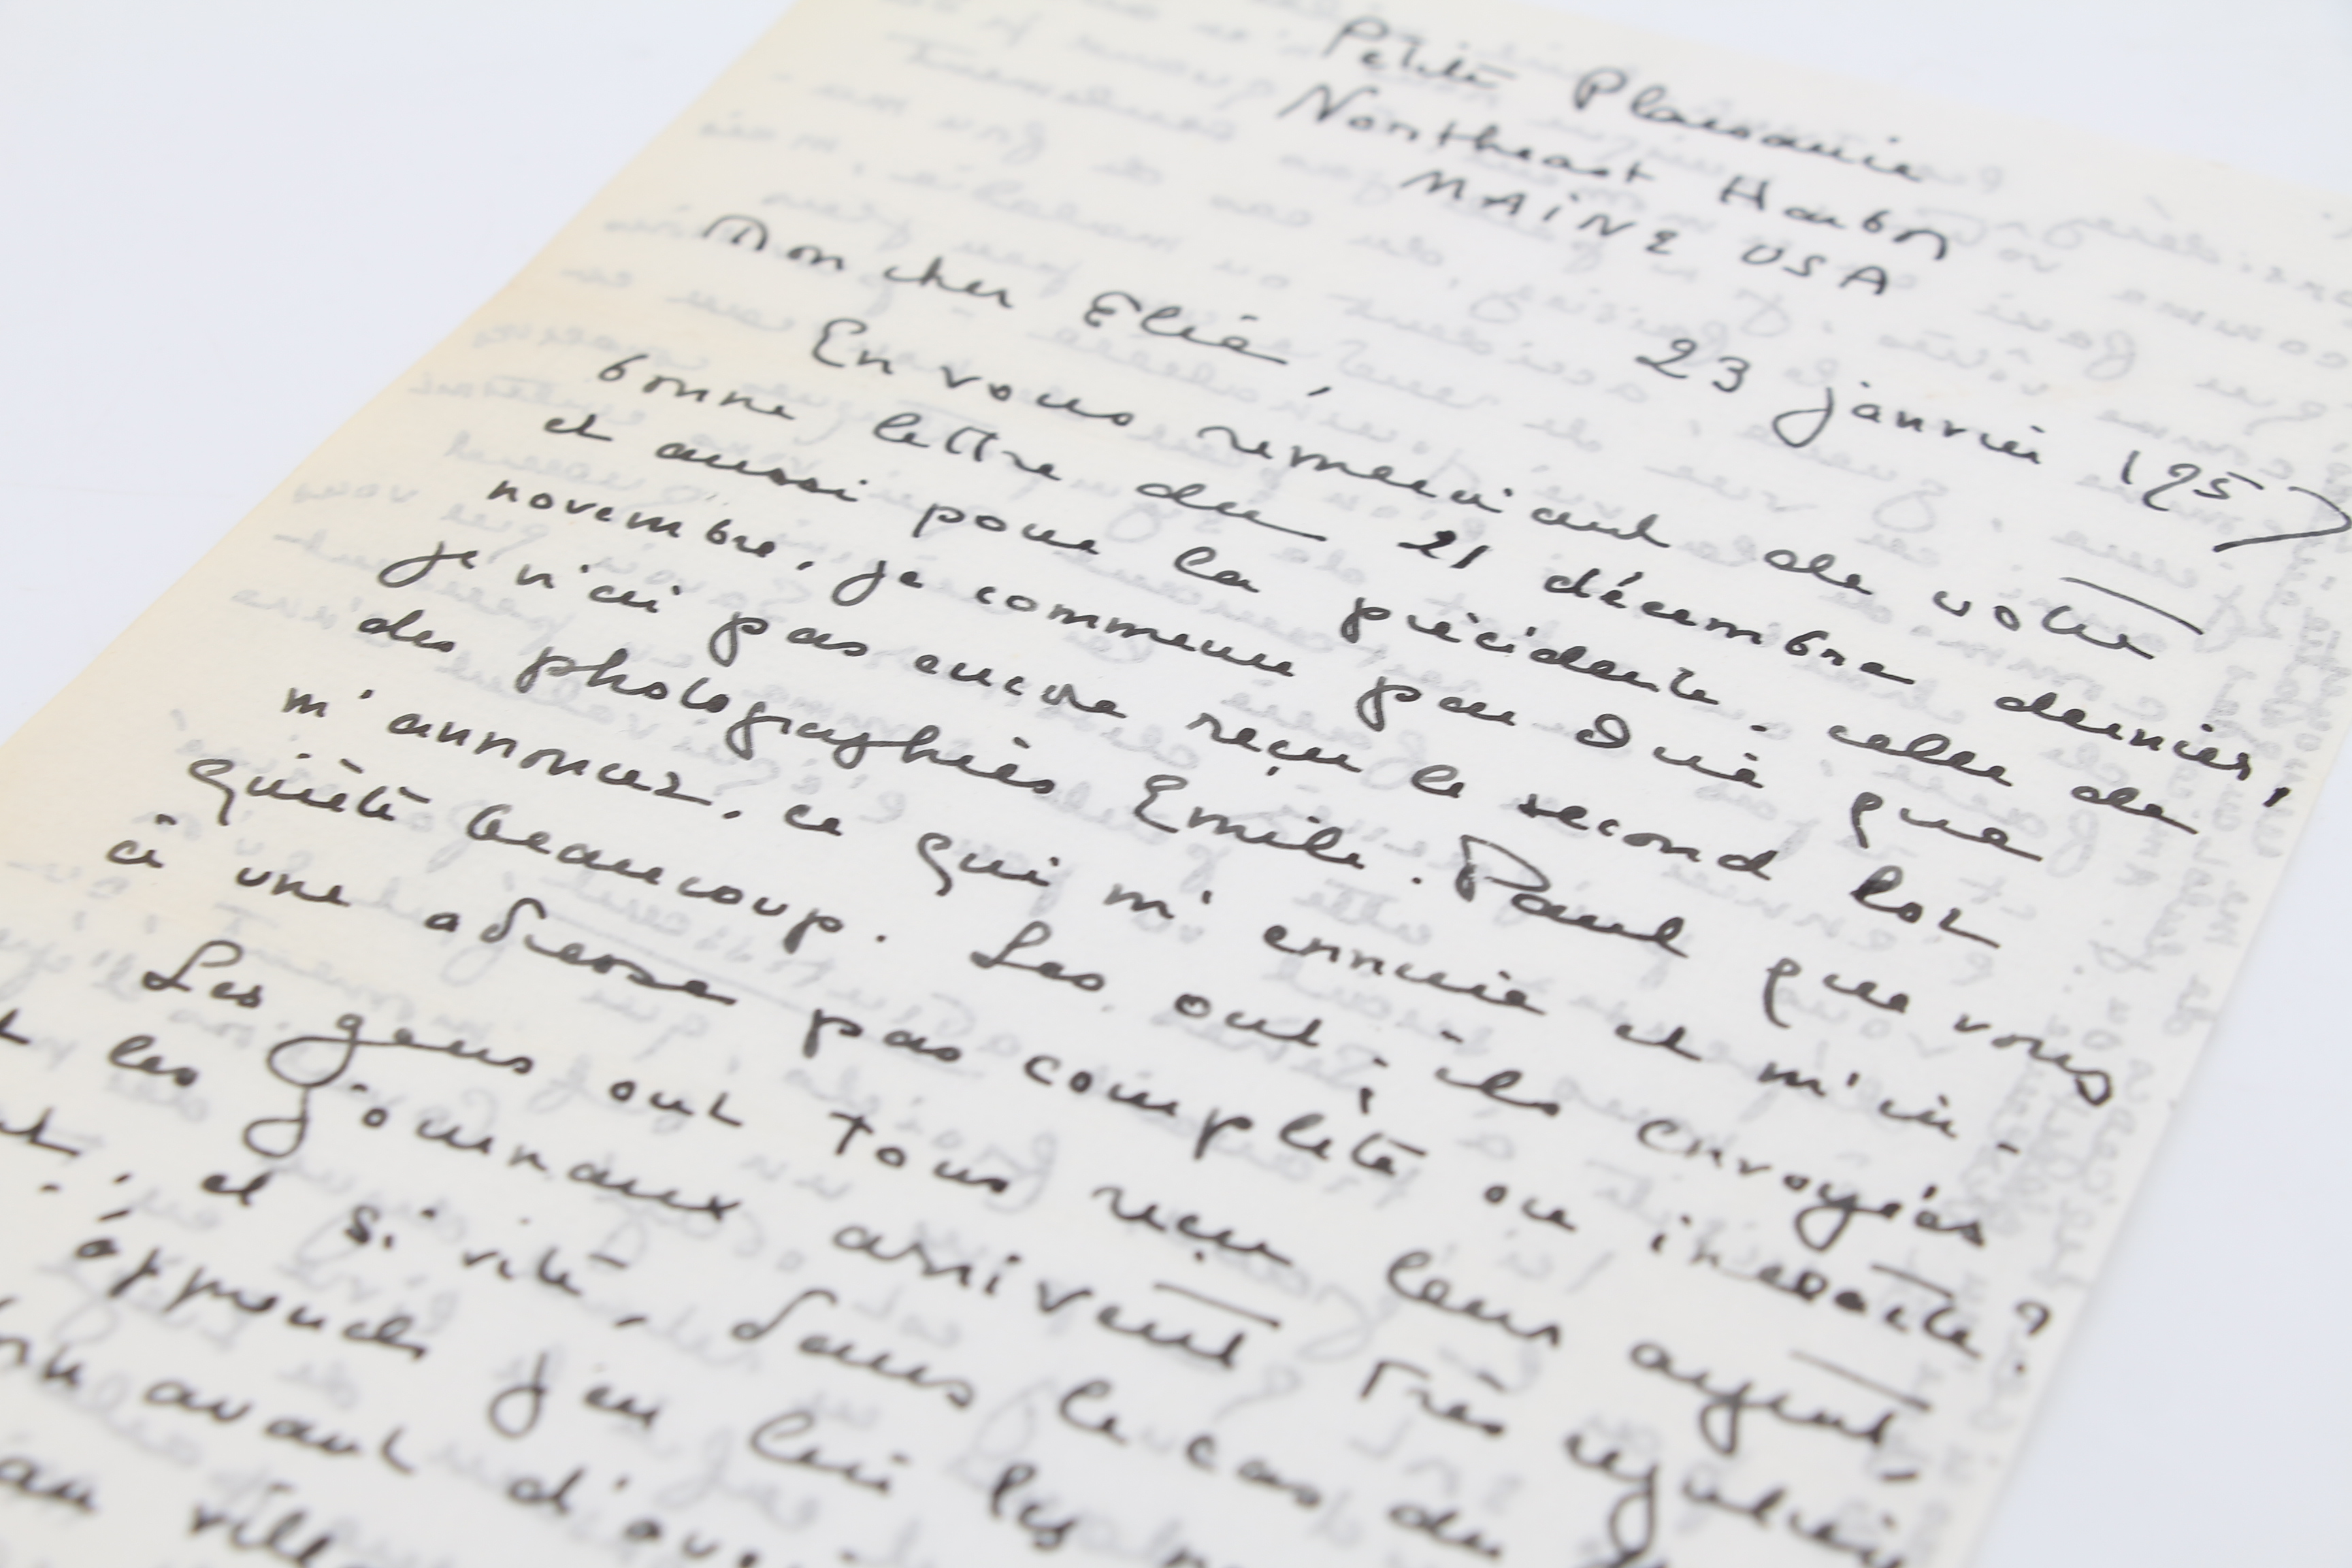 Petite Plaisance
Northeast Harbor
MAINE USA
23 janvier 1957
Mon cher Elie,
En vous remerciant de votre
bonne lettre du 21 décembre dernier,
et aussi pour la précédente, celle de
novembre, je commence par dire que
je n'ai pas encore reçu le second lot
des photographies Emile-Paul que vous
m'annoncez, ce qui m'ennuie et m'in-
quiète beaucoup. Les ont-ils envoyées
à une adresse pas complète ou inexacte?
Les gens ont tous reçu leur argent,
et les journaux arrivent très
et si vite, dans le cas du
apprends j'en lui les
avant
au